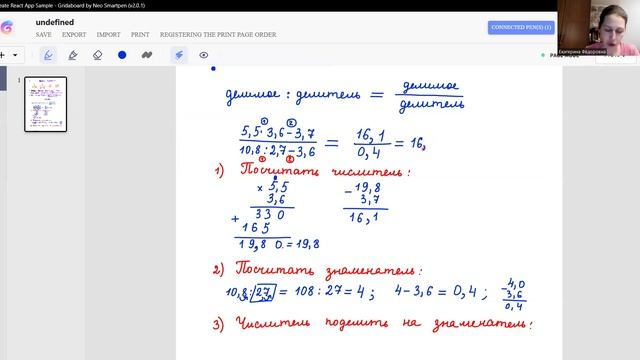 eate React App Sample - Gridaboard by Neo Smartpen (v2.0.1)
undefined
SAVE EXPORT IMPORT PRINT REGISTERING THE PRINT PAGE ORDER
CONNECTED PEN(S) (1)
Екатерина Фёдоровна
1
делимое : делитель = делимое / делитель
① ②
5,5·3,6-3,7 / 10,8:2,7-3,6 = 16,1 / 0,4 = 16,
① ②
1) Посчитать числитель:
× 5,5 - 19,8
3,6 3,7
+ 330 16,1
165
19,80. = 19,8
2) Посчитать знаменатель:
10,8:27, = 108 : 27 = 4 ; 4-3,6 = 0,4 ; -4,0
3,6
0,4
3) Числитель поделить на знаменатель: